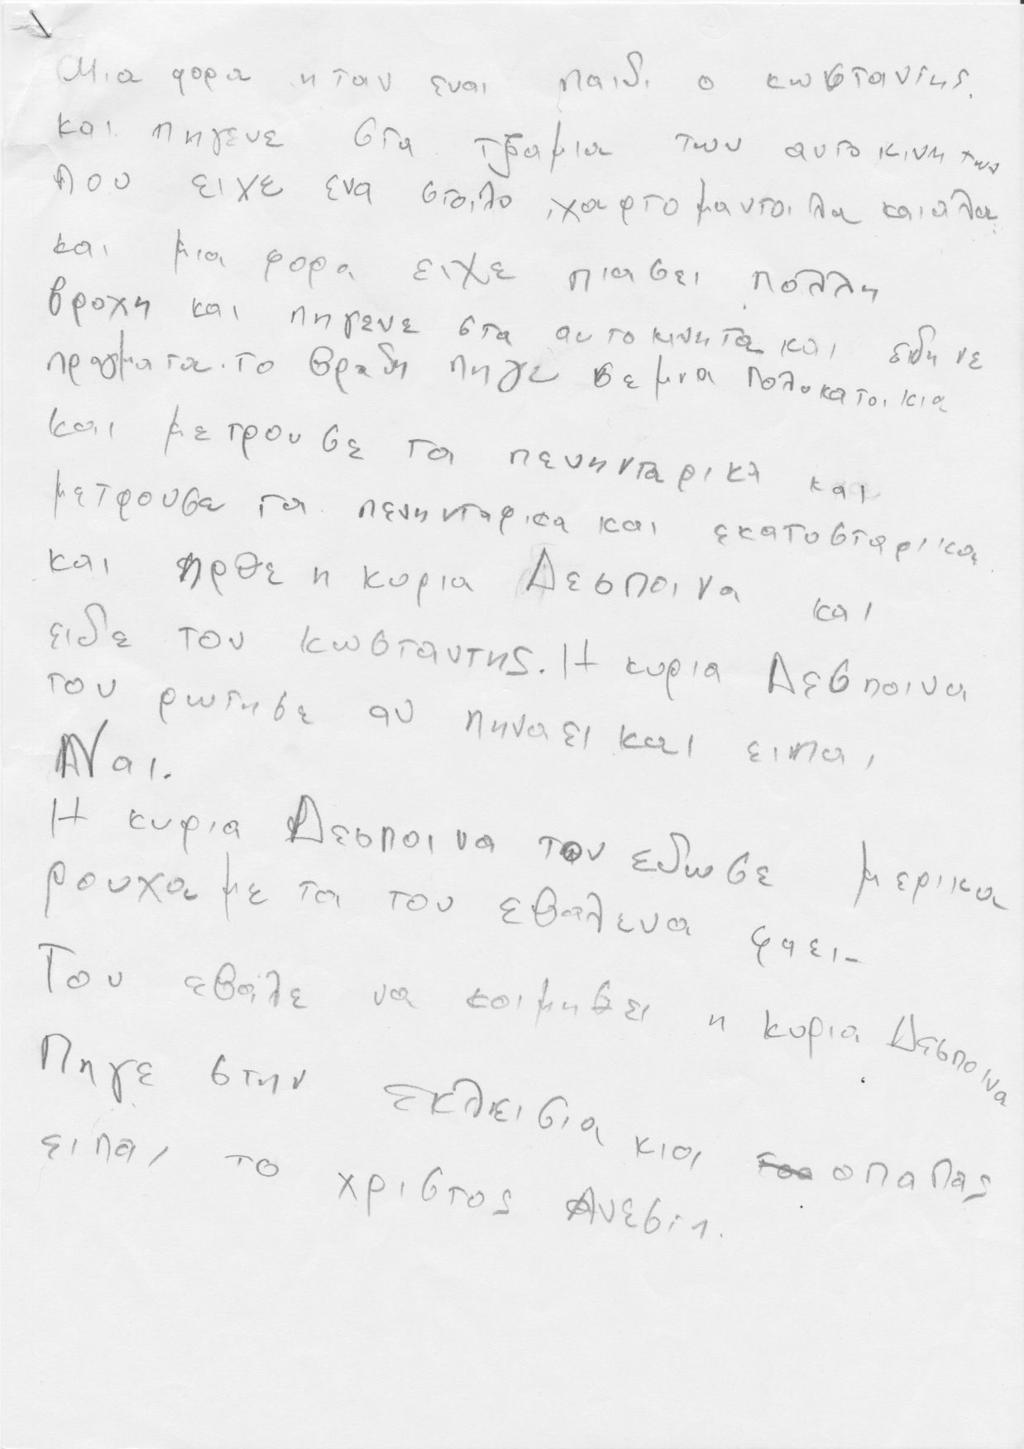 Μια φορα ηταν εναι παιδι ο κωσταντης.
και πηγενε στα τζαμια των αυτοκινητων
που ειχε ενα στοιλο ,χαρτομαντοιλα και αλα.
και μια φορα ειχε πιασει πολλη
βροχη και πηγενε στα αυτοκινητα και εδηνε
πραγματα. το βραδη πηγε σε μνα πολυκατοικια
και μετρουσε τα πενηνταρικα και
μετρουσε τα πενηνταρικα και εκατοσταρικα
και ηρθε η κυρια Δεσποινα και
ειδε τον κωσταντης. Η κυρια Δεσποινα
τον ρωτησε αν πηναει και ειπαι
Ναι.
Η κυρια Δεσποινα τον εδωσε μερικα
ρουχα με τα του εβαλενα φαει-
Τον εβαλε να κοιμηθει η κυρια Δεσποινα
Πηγε στην εκλεισια κιαι ο παπας
ειπαι το χριστος Ανεστη.